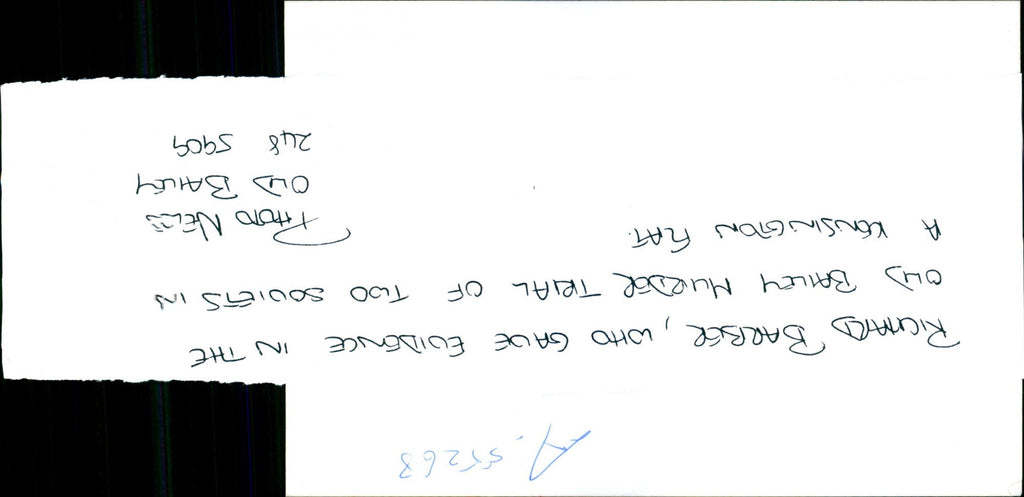 A.55268
RICHARD BARBER, WHO GAVE EVIDENCE IN THE
OLD BAILEY MURDER TRIAL OF TWO SOVIETS IN
A KENSINGTON FLAT.
PHOTO NEWS
OLD BAILEY
248 5909